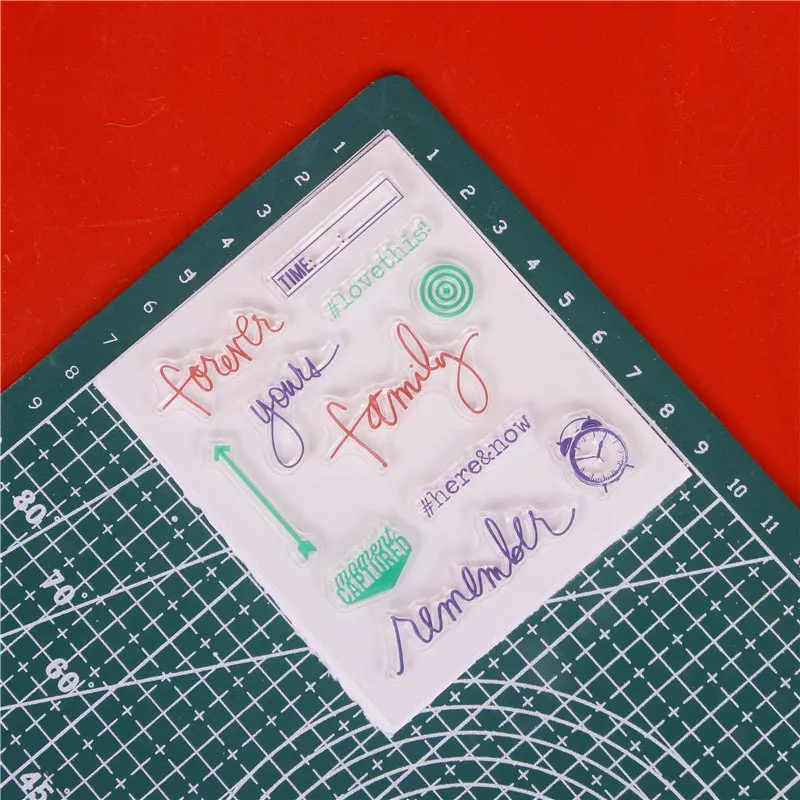 TIME: __:__
#lovethis!
forever
yours
family
#here&now
moment
CAPTURED
remember
1
2
3
4
5
6
7
8
9
1
2
3
4
5
6
7
8
9
10
11
80°
70°
60°
45